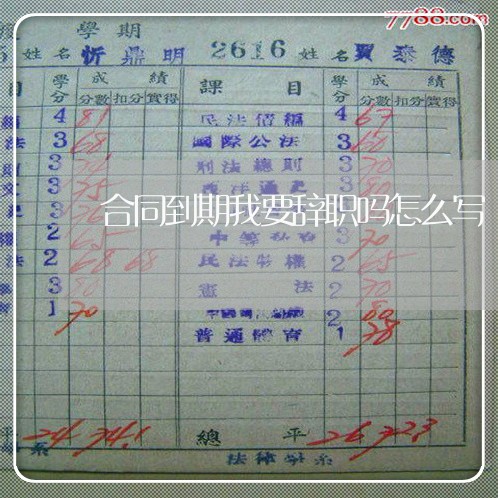 7788.com
學期
姓名 忻鼎明 2616 姓名 賈泰德
目 學分 成績 課目 學分 成績
分數 扣分 實得 分數 扣分 實得
4 81 民法債編 4 67
法 3 68 國際公法 3 60
3 刑法總則 3 70
3 75 3 80
合同到期我要辞职吗怎么写
2 65 3 70
法 2 68 68 民法物權 2 65
3 80 憲法 2 70
1 70 2 80
普通體育 1 78
平 24 74.1 總平 26 72.3
系 法律學系